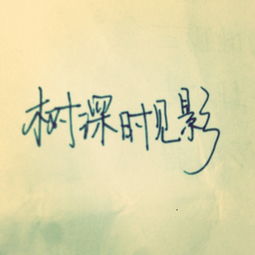 树深时见影